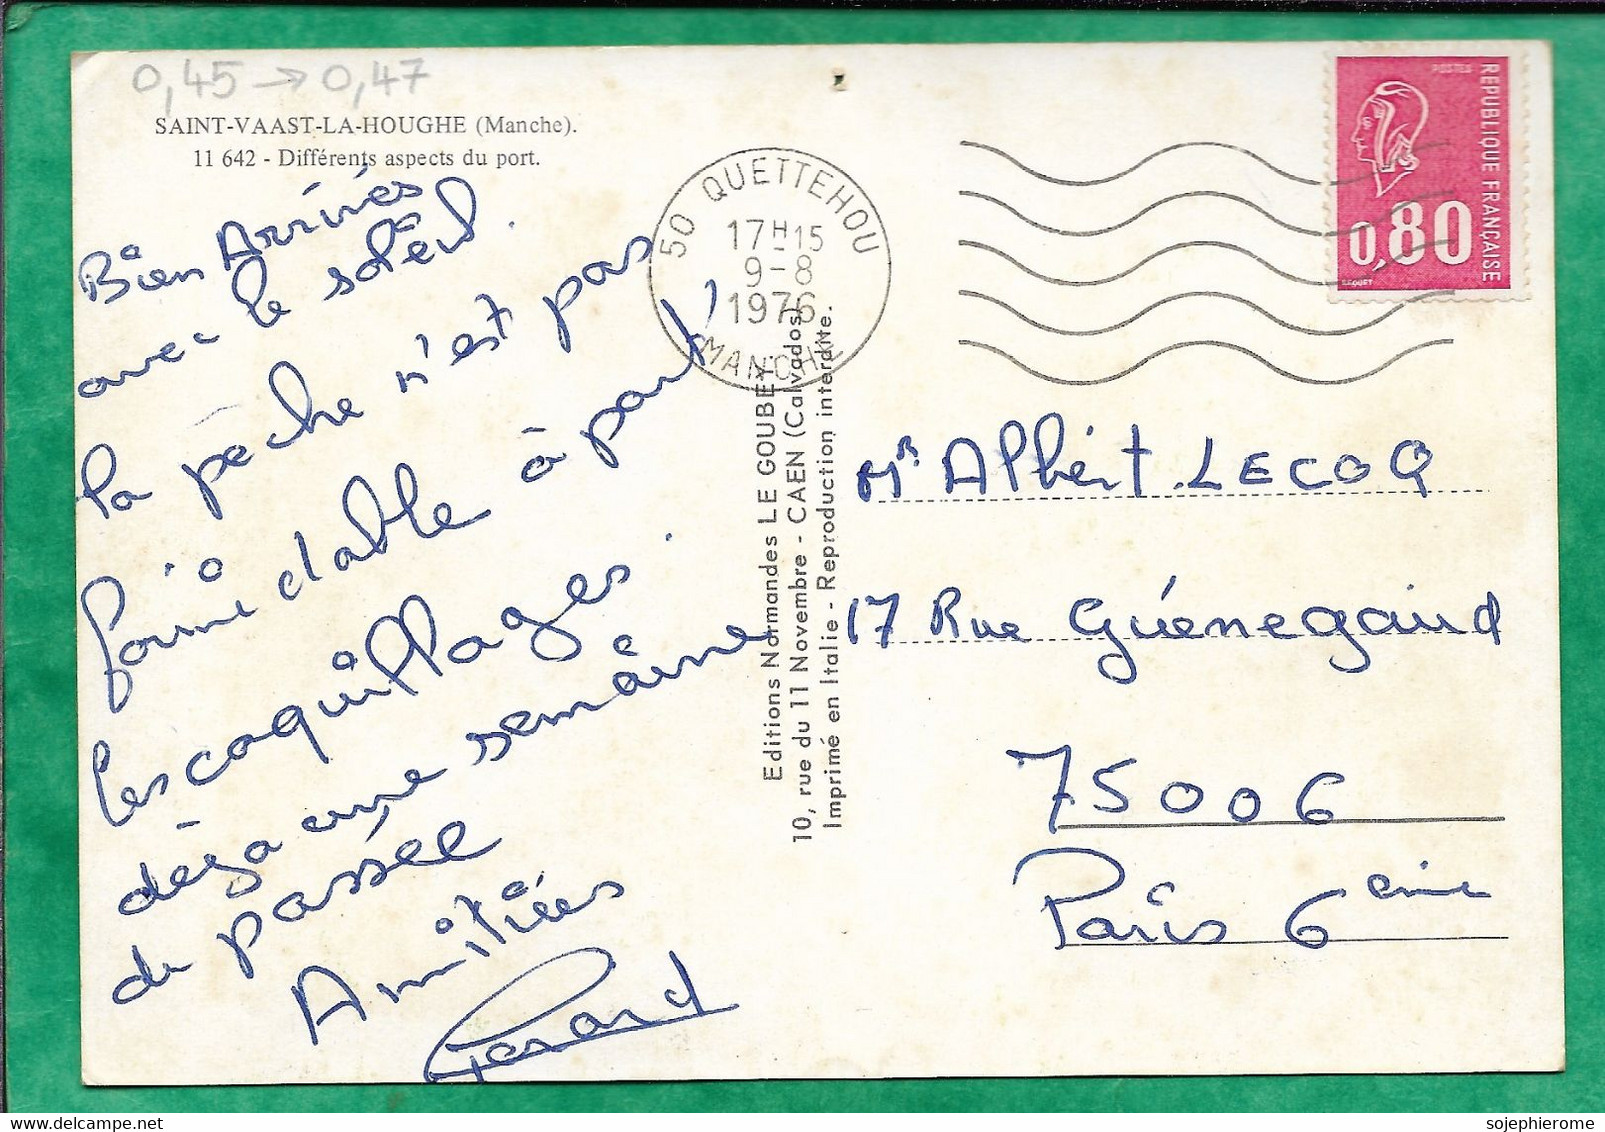 0,45 → 0,47
SAINT-VAAST-LA-HOUGHE (Manche).
11 642 - Différents aspects du port.
Bien Arrivés
avec le soleil.
la pêche n'est pas
formidable à part
les coquillages.
déjà une semaine
de passée
Amitiées
Gérard
50 QUETTEHOU
17H-15
9-8
1976
MANCHE
Editions Normandes LE GOUBEY
10, rue du 11 Novembre - CAEN (Calvados)
Imprimé en Italie - Reproduction interdite.
POSTES
REPUBLIQUE FRANÇAISE
0,80
BEQUET
Mr Albert LECOQ
17 Rue Guénegaud
75006
Paris 6eme
sojephierome